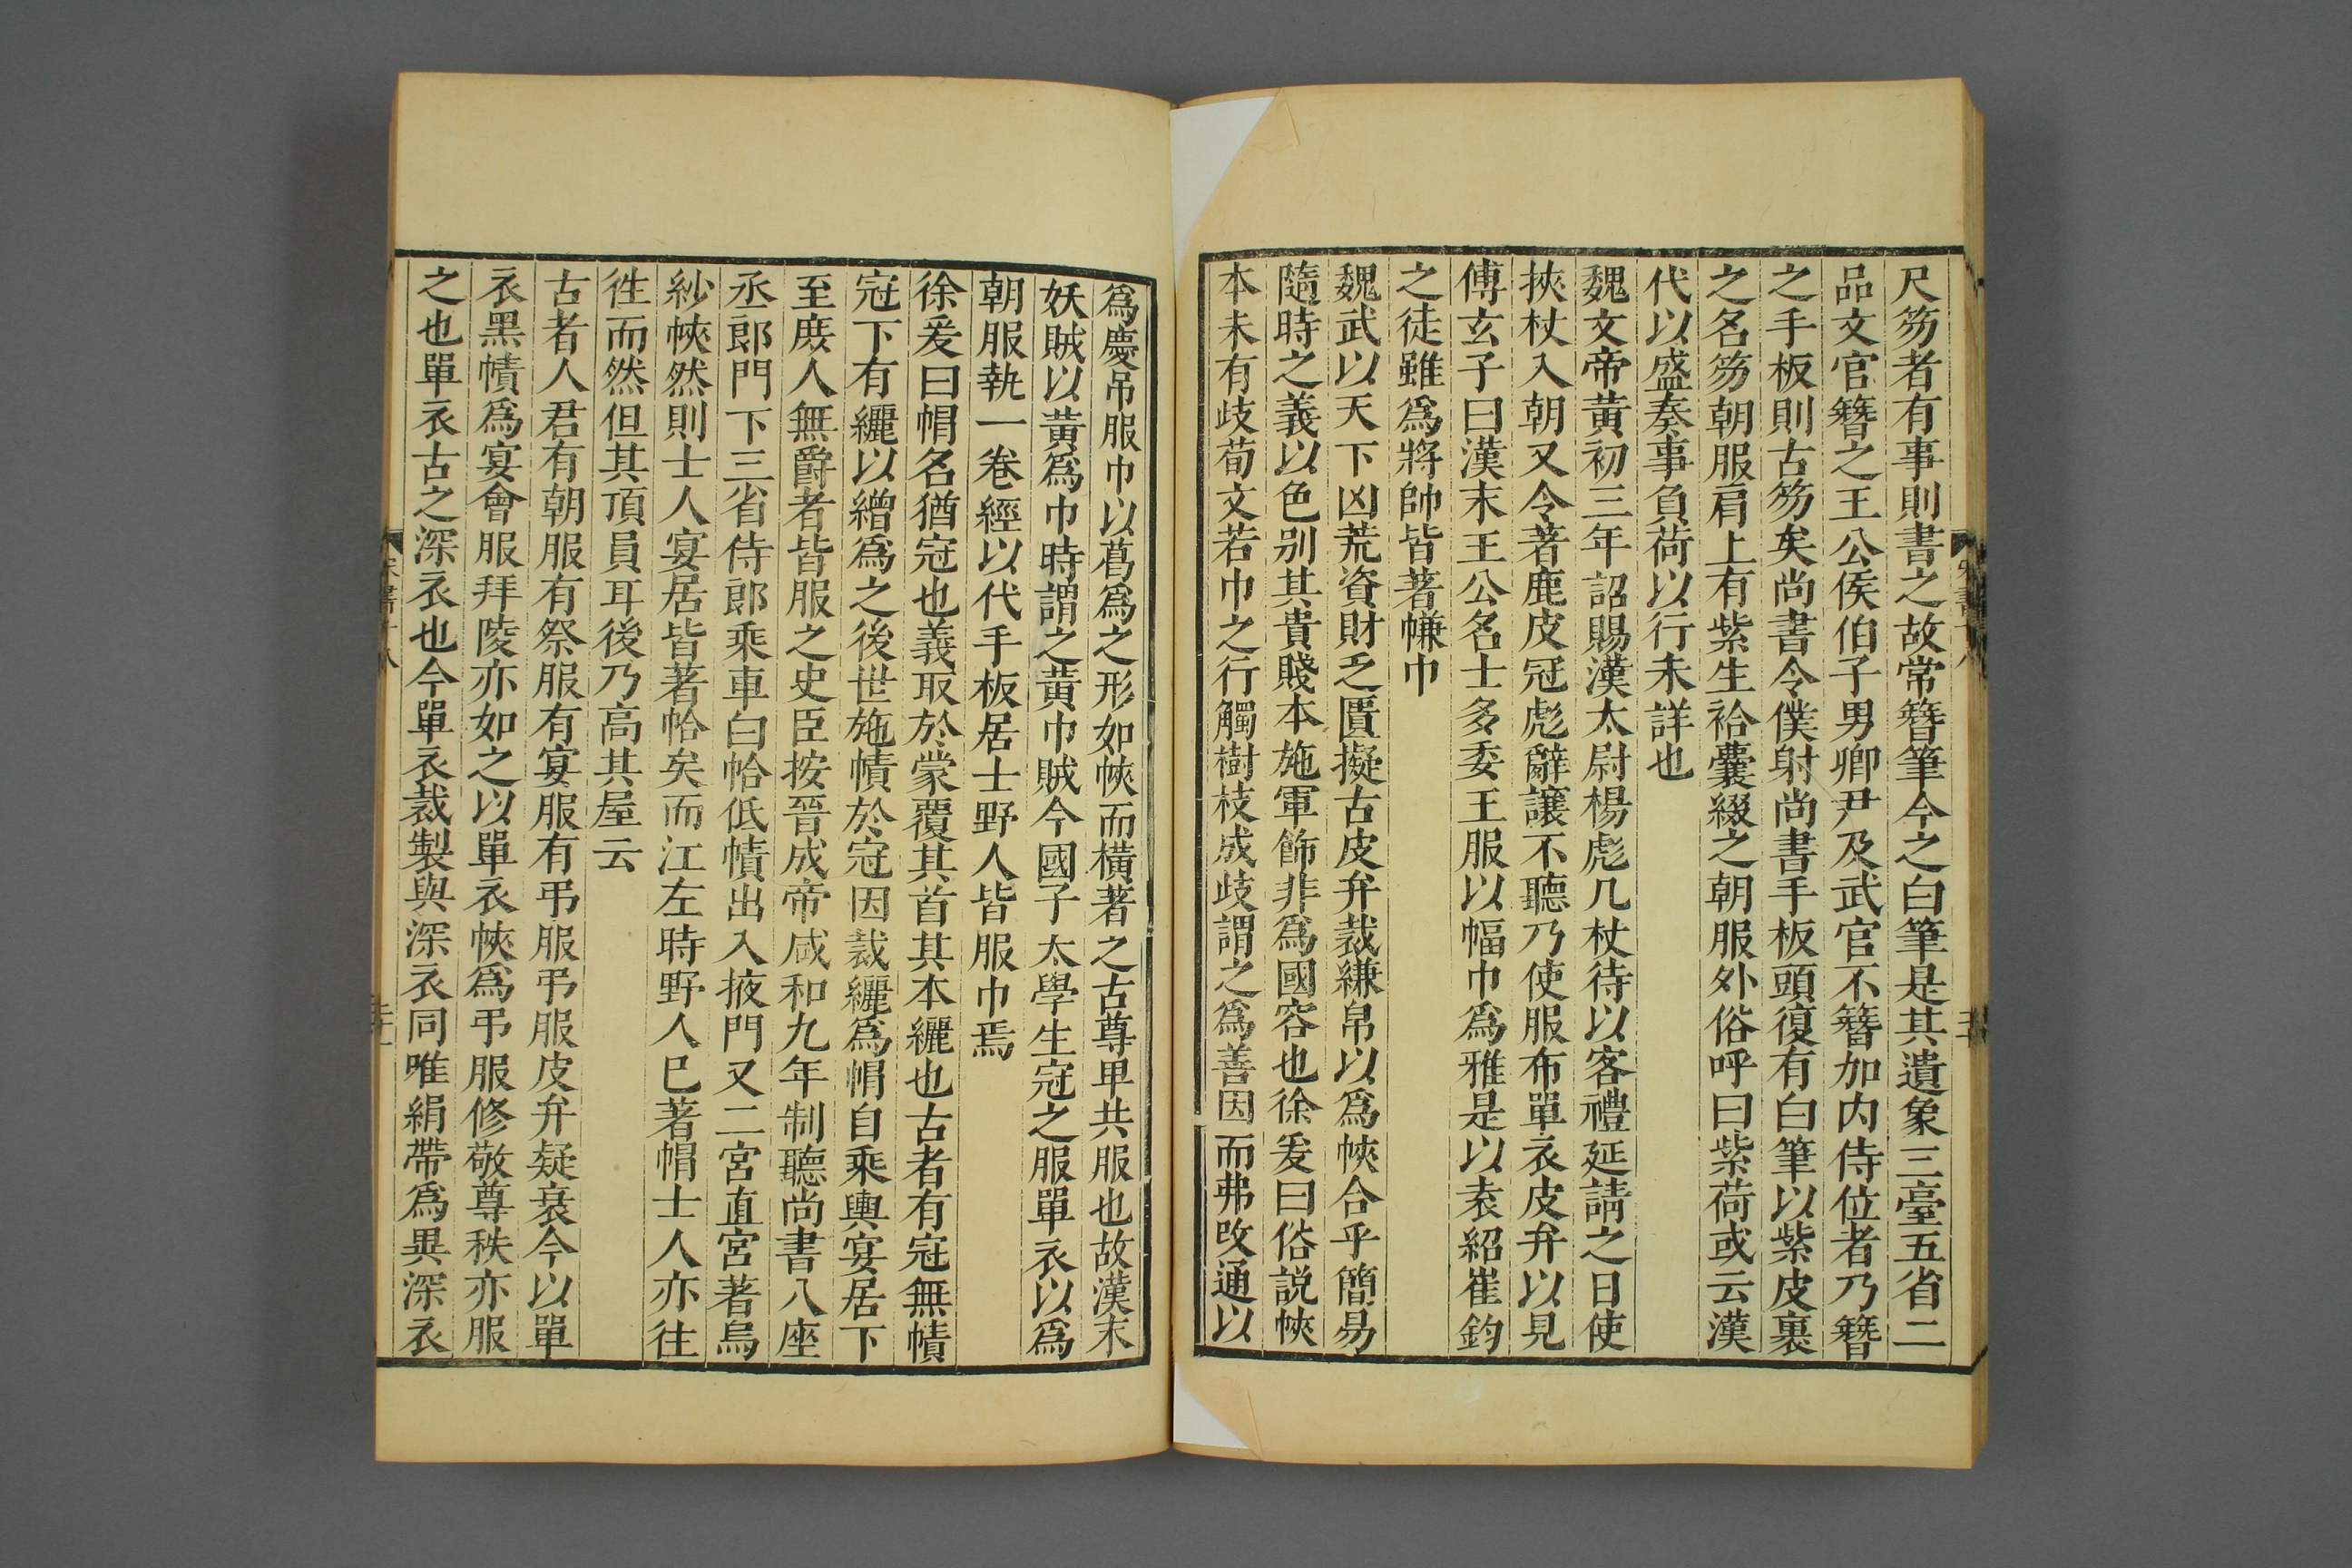 尺笏者有事則書之故常簪筆今之白筆是其遺象三臺五省二
品文官簪之王公侯伯子男卿尹及武官不簪加内侍位者乃簪
之手板則古笏矣尚書令僕射尚書手板頭復有白筆以紫皮裹
之名笏朝服肩上有紫生袷囊綴之朝服外俗呼曰紫荷或云漢
代以盛奏事負荷以行未詳也
魏文帝黄初三年詔賜漢太尉楊彪几杖待以客禮延請之日使
挾杖入朝又令著鹿皮冠彪辭讓不聽乃使服布單衣皮弁以見
傅玄子曰漢末王公名士多委王服以幅巾爲雅是以袁紹崔鈞
之徒雖爲將帥皆著㡘巾
魏武以天下凶荒資財乏匱擬古皮弁裁縑帛以爲㡊合乎簡易
隨時之義以色别其貴賤本施軍飾非爲國容也徐爰曰俗説㡊
本未有歧荀文若巾之行觸樹枝成歧謂之爲善因而弗改通以
爲慶吊服巾以葛爲之形如㡊而橫著之古尊卑共服也故漢末
妖賊以黄爲巾時謂之黄巾賊今國子太學生冠之服單衣以爲
朝服執一卷經以代手板居士野人皆服巾焉
徐爰曰帽名猶冠也義取於蒙覆其首其本纚也古者有冠無幘
冠下有纚以繒爲之後世施幘於冠因裁纚爲帽自乘輿宴居下
至庶人無爵者皆服之史臣按晉成帝咸和九年制聽尚書八座
丞郎門下三省侍郎乘車白帢低幘出入掖門又二宮直宮著烏
紗㡊然則士人宴居皆著帢矣而江左時野人已著帽士人亦往
徃而然但其頂員耳後乃高其屋云
古者人君有朝服有祭服有宴服有弔服弔服皮弁疑衰今以單
衣黑幘爲宴會服拜陵亦如之以單衣㡊爲弔服修敬尊秩亦服
之也單衣古之深衣也今單衣裁製與深衣同唯絹帶爲異深衣
宋書十八